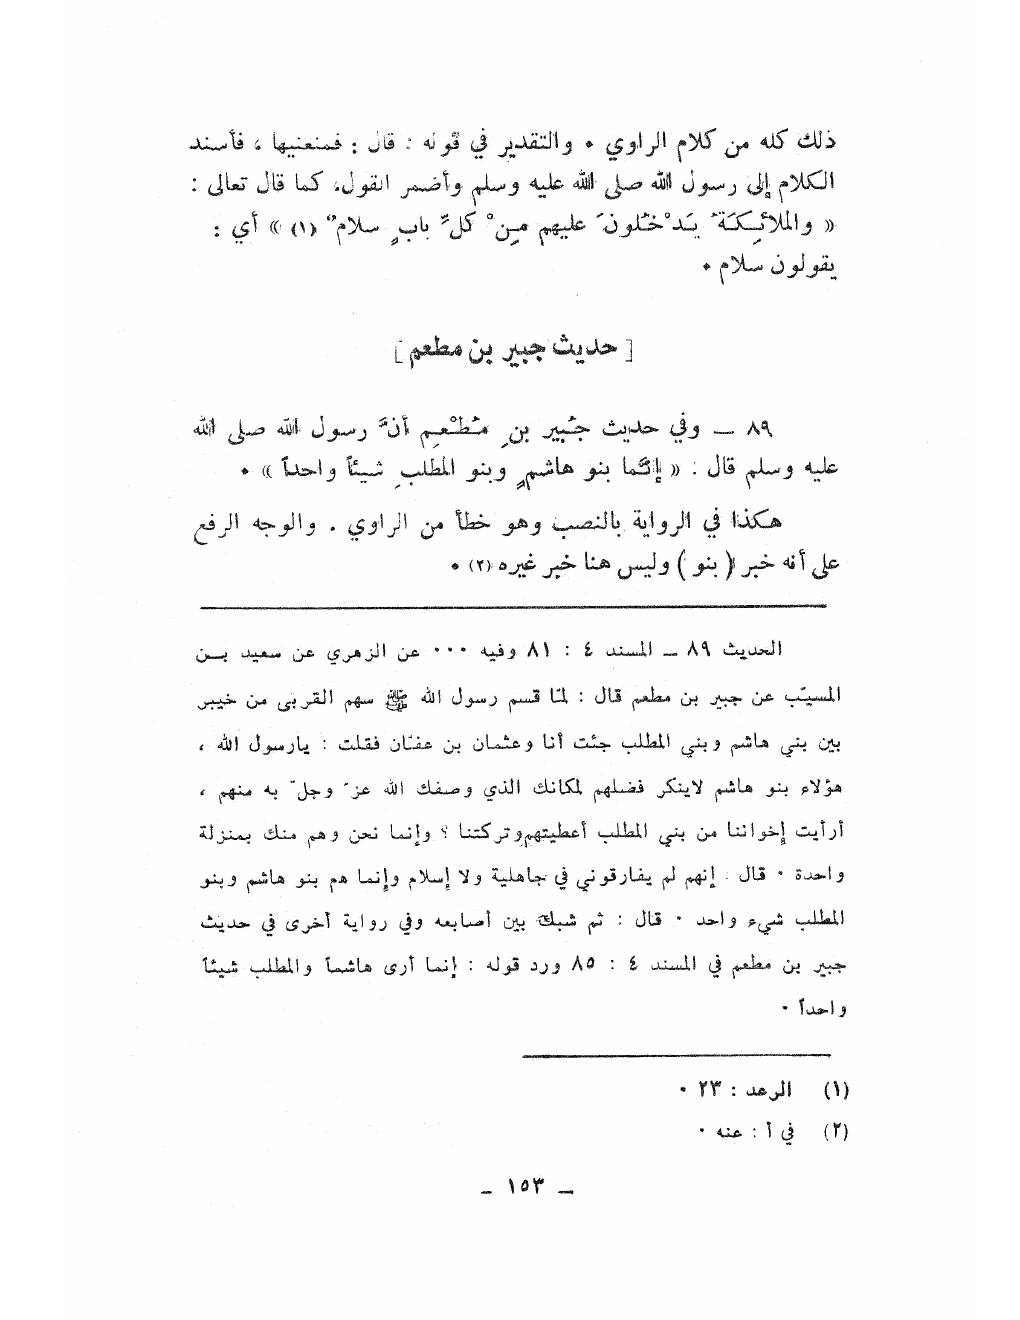 ذلك كله من كلام الراوي • والتقدير في قوله : قال : فمنعنيها ، فأسند
الكلام إلى رسول الله صلى الله عليه وسلم وأضمر القول، كما قال تعالى :
« والملائِكَةُ يَدْخُلونَ عليهم مِنْ كلِّ بابٍ سلامٌ (١) » أي :
يقولون سلام •
[ حديث جبير بن مطعم ]
٨٩ – وفي حديث جُبير بنِ مُطْعِمٍ أنَّ رسول الله صلى الله
عليه وسلم قال : « إنَّما بنو هاشمٍ وبنو المطلبِ شيئاً واحداً » •
هكذا في الرواية بالنصب وهو خطأ من الراوي . والوجه الرفع
على أنه خبر ( بنو ) وليس هنا خبر غيره (٢) •
الحديث ٨٩ – المسند ٤ : ٨١ وفيه ••• عن الزهري عن سعيد بن
المسيّب عن جبير بن مطعم قال : لمّا قسم رسول الله ﷺ سهم القربى من خيبر
بين بني هاشم وبني المطلب جئت أنا وعثمان بن عفّان فقلت : يارسول الله ،
هؤلاء بنو هاشم لاينكر فضلهم لمكانك الذي وصفك الله عزّ وجلّ به منهم ،
أرأيت إخواننا من بني المطلب أعطيتهم وتركتنا ؟ وإنما نحن وهم منك بمنزلة
واحدة • قال : إنهم لم يفارقوني في جاهلية ولا إسلام وإنما هم بنو هاشم وبنو
المطلب شيء واحد • قال : ثم شبك بين أصابعه وفي رواية أخرى في حديث
جبير بن مطعم في المسند ٤ : ٨٥ ورد قوله : إنما أرى هاشماً والمطلب شيئاً
واحداً •
(١) الرعد : ٢٣ •
(٢) في أ : عنه •
– ١٥٣ –